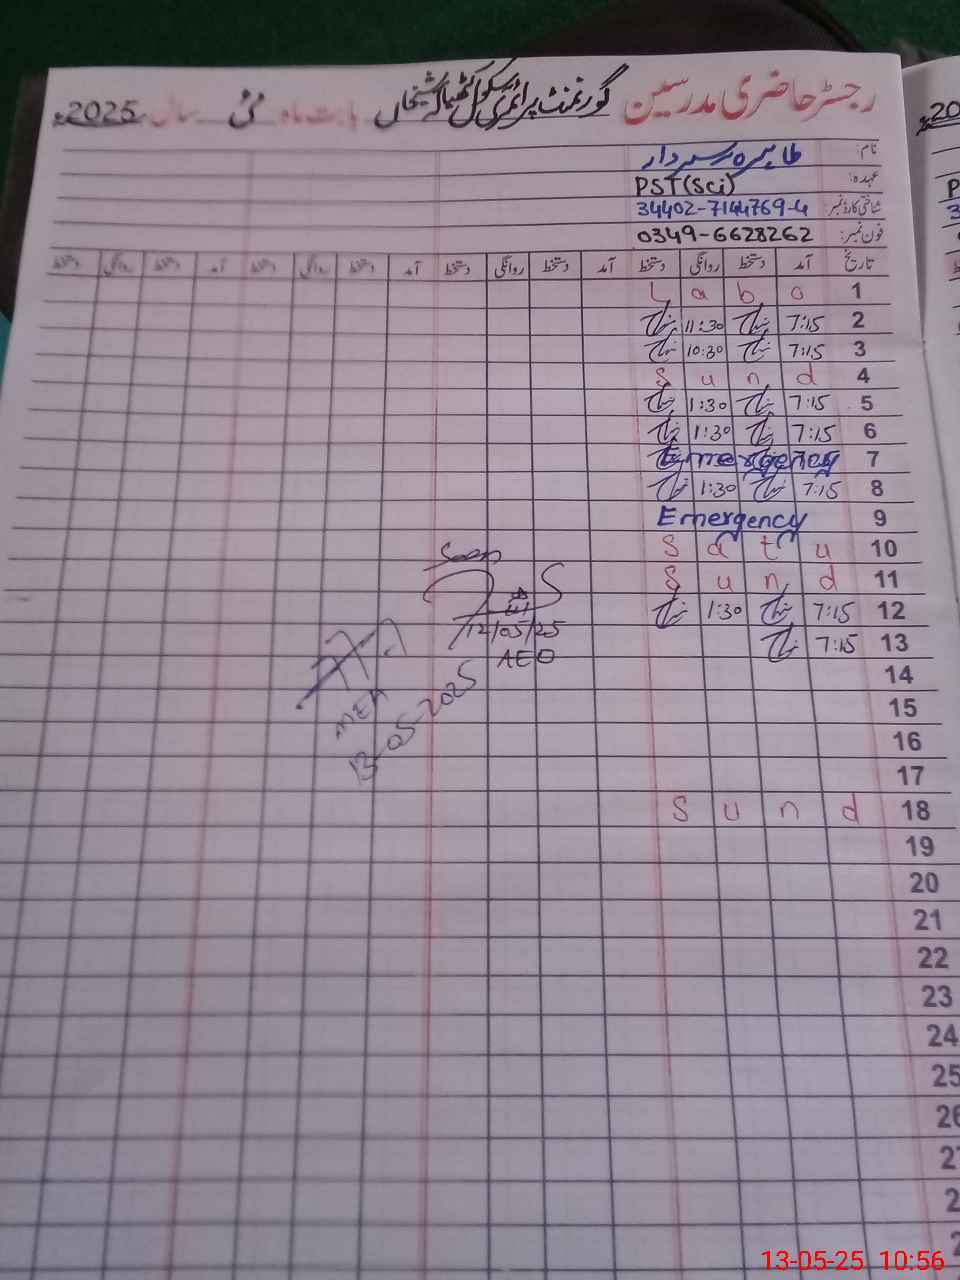 رجسٹر حاضری مدرسین گورنمنٹ پرائمری سکول ٹھٹھیالہ شیخاں بابت ماہ مئی سال 2025ء
نام: طاہرہ سردار
عہدہ: PST(Sci)
شناختی کارڈ نمبر: 34402-7144769-4
فون نمبر: 0349-6628262
تاریخ آمد دستخط روانگی دستخط آمد دستخط روانگی دستخط آمد دستخط روانگی دستخط آمد دستخط روانگی دستخط
L a b o 1
11:30 7:15 2
10:30 7:15 3
S u n d 4
1:30 7:15 5
1:30 7:15 6
Emergency 7
1:30 7:15 8
Emergency 9
S a t u 10
S u n d 11
1:30 7:15 12
7:15 13
14
15
16
17
S u n d 18
19
20
21
22
23
24
25
26
2
2
2
Seen
12/05/25
AEO
MEA
13-05-2025
20
P
3
13-05-25 10:56